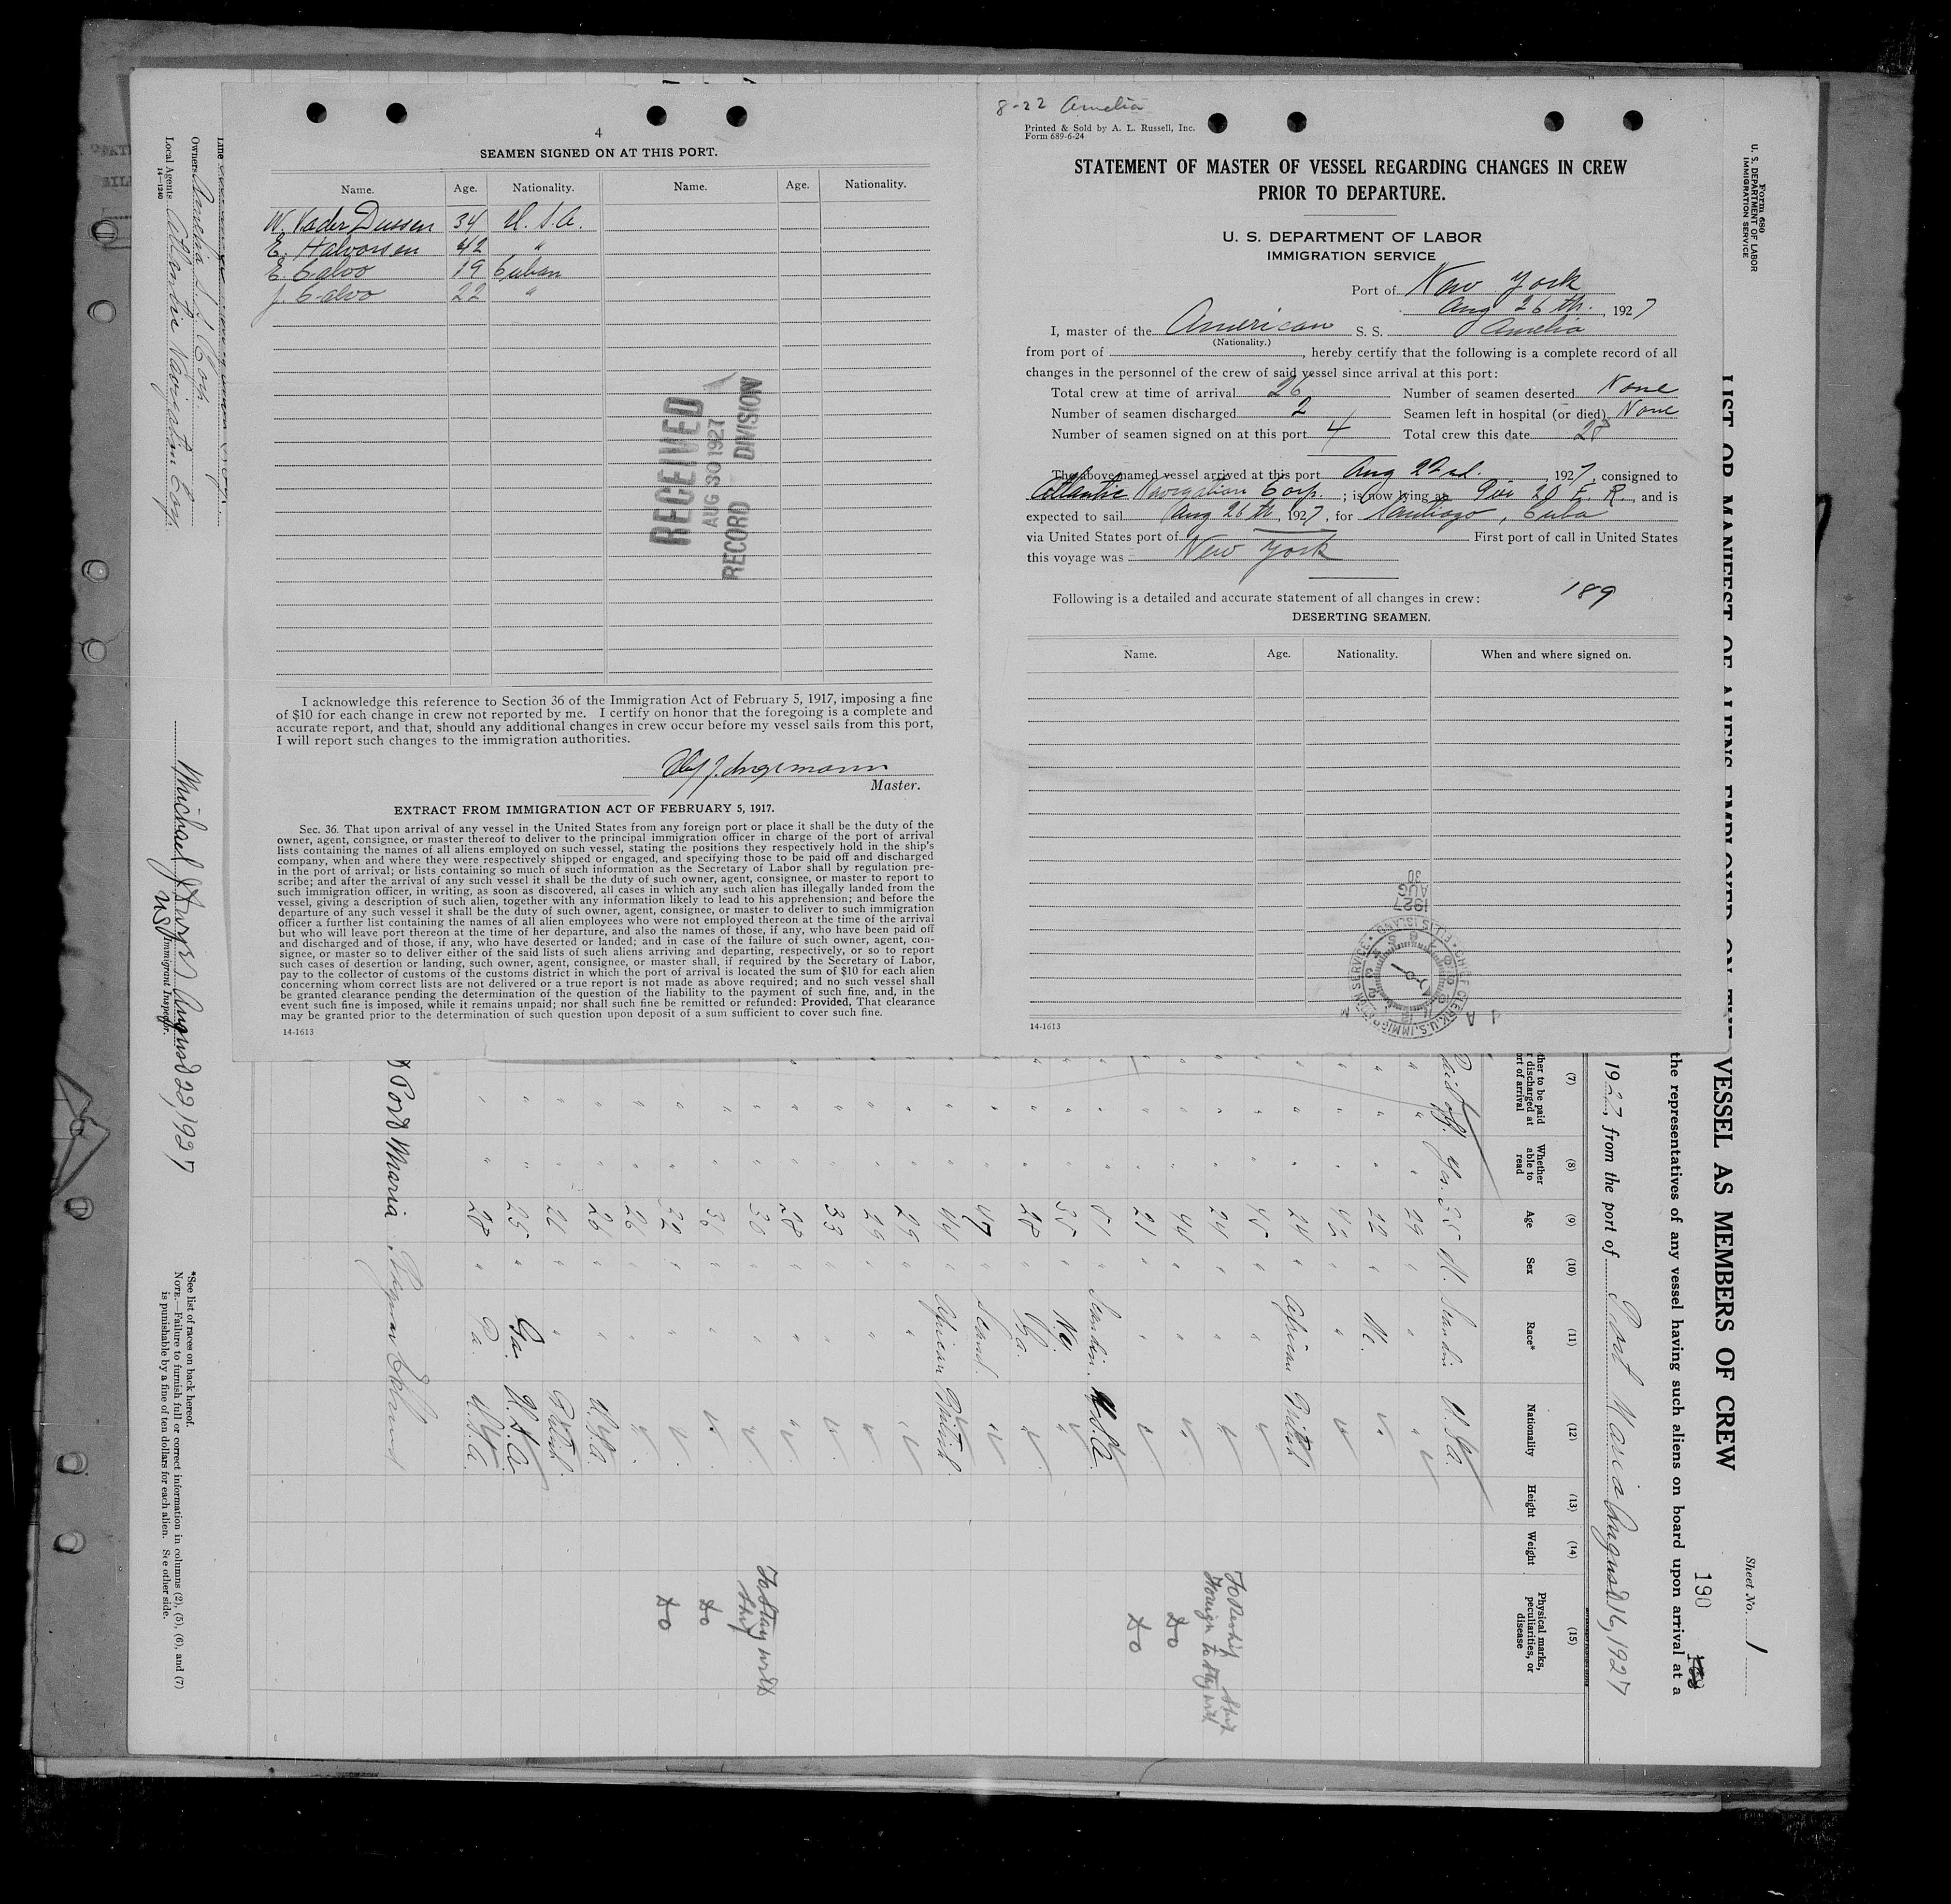 4
SEAMEN SIGNED ON AT THIS PORT.
Name. Age. Nationality. Name. Age. Nationality.
W. Vader Dussen 34 U.S.A.
E. Halvorsen 42 "
E. Calvo 19 Cuban
J. Calvo 22 "
RECEIVED
AUG 30 1927
RECORD DIVISION
I acknowledge this reference to Section 36 of the Immigration Act of February 5, 1917, imposing a fine
of $10 for each change in crew not reported by me. I certify on honor that the foregoing is a complete and
accurate report, and that, should any additional changes in crew occur before my vessel sails from this port,
I will report such changes to the immigration authorities.
Master.
EXTRACT FROM IMMIGRATION ACT OF FEBRUARY 5, 1917.
Sec. 36. That upon arrival of any vessel in the United States from any foreign port or place it shall be the duty of the
owner, agent, consignee, or master thereof to deliver to the principal immigration officer in charge of the port of arrival
lists containing the names of all aliens employed on such vessel, stating the positions they respectively hold in the ship's
company, when and where they were respectively shipped or engaged, and specifying those to be paid off and discharged
in the port of arrival; or lists containing so much of such information as the Secretary of Labor shall by regulation pre-
scribe; and after the arrival of any such vessel it shall be the duty of such owner, agent, consignee, or master to report to
such immigration officer, in writing, as soon as discovered, all cases in which any such alien has illegally landed from the
vessel, giving a description of such alien, together with any information likely to lead to his apprehension; and before the
departure of any such vessel it shall be the duty of such owner, agent, consignee, or master to deliver to such immigration
officer a further list containing the names of all alien employees who were not employed thereon at the time of the arrival
but who will leave port thereon at the time of her departure, and also the names of those, if any, who have been paid off
and discharged and of those, if any, who have deserted or landed; and in case of the failure of such owner, agent, con-
signee, or master so to deliver either of the said lists of such aliens arriving and departing, respectively, or so to report
such cases of desertion or landing, such owner, agent, consignee, or master shall, if required by the Secretary of Labor,
pay to the collector of customs of the customs district in which the port of arrival is located the sum of $10 for each alien
concerning whom correct lists are not delivered or a true report is not made as above required; and no such vessel shall
be granted clearance pending the determination of the question of the liability to the payment of such fine, and, in the
event such fine is imposed, while it remains unpaid; nor shall such fine be remitted or refunded: Provided, That clearance
may be granted prior to the determination of such question upon deposit of a sum sufficient to cover such fine.
14-1613
8-22 Amelia
Printed & Sold by A. L. Russell, Inc.
Form 689-6-24
STATEMENT OF MASTER OF VESSEL REGARDING CHANGES IN CREW
PRIOR TO DEPARTURE.
U. S. DEPARTMENT OF LABOR
IMMIGRATION SERVICE
Port of New York
Aug 26th, 1927
I, master of the American S. S. Amelia
(Nationality.)
from port of , hereby certify that the following is a complete record of all
changes in the personnel of the crew of said vessel since arrival at this port:
Total crew at time of arrival 26 Number of seamen deserted None
Number of seamen discharged 2 Seamen left in hospital (or died) None
Number of seamen signed on at this port 4 Total crew this date 28
The above named vessel arrived at this port Aug 22nd, 1927, consigned to
Atlantic Navigation Corp. ; is now lying at Pier 20 E. R., and is
expected to sail Aug 26th, 1927, for Santiago, Cuba
via United States port of First port of call in United States
this voyage was New York
189
Following is a detailed and accurate statement of all changes in crew:
DESERTING SEAMEN.
Name. Age. Nationality. When and where signed on.
1927
AUG
30
CHIEF CLERK, U.S. IMMIGRATION SERVICE ELLIS ISLAND
14-1613
Form 680
U. S. DEPARTMENT OF LABOR
IMMIGRATION SERVICE
Sheet No. 1
LIST OR MANIFEST OF ALIENS EMPLOYED ON THE VESSEL AS MEMBERS OF CREW
190
the representatives of any vessel having such aliens on board upon arrival at a
1927, from the port of Port Maria August 16, 1927
(7) (8) (9) (10) (11) (12) (13) (14) (15)
Whether able to read
Age
Sex
Race*
Nationality
Height
Weight
Physical marks, peculiarities, or disease
Paid off. Yes. 35 M. Scandin U.S.A.
29
22 Me.
24 African British
45
24
44
21
51 Scandin. U.S.A.
35 N.Y.
28
47 Scand.
44 African British
29
29
33
28
36
36
32
26
26 U.S.A.
26 British
25 Ga. U.S.A.
28 Pa. U.S.A.
To stay with ship
do
do
do
do
Port Maria
Owners Amelia S. S. Corp.
Local Agents Atlantic Navigation Corp.
14-1240
Michael August 22, 1927
Immigrant Inspector.
*See list of races on back hereof.
NOTE.—Failure to furnish full or correct information in columns (2), (5), (6), and (7)
is punishable by a fine of ten dollars for each alien. See other side.